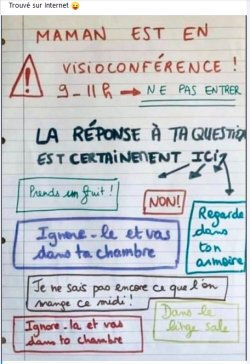 Trouvé sur Internet 😜
MAMAN EST EN
VISIOCONFÉRENCE !
9-11h → NE PAS ENTRER
LA RÉPONSE À TA QUESTION
EST CERTAINEMENT ICI :
Prends un fruit !
NON!
Regarde
dans
ton
armoire
Ignore-le et vas
dans ta chambre
Je ne sais pas encore ce que l'on
mange ce midi !
Dans le
linge sale
Ignore-la et vas
dans ta chambre